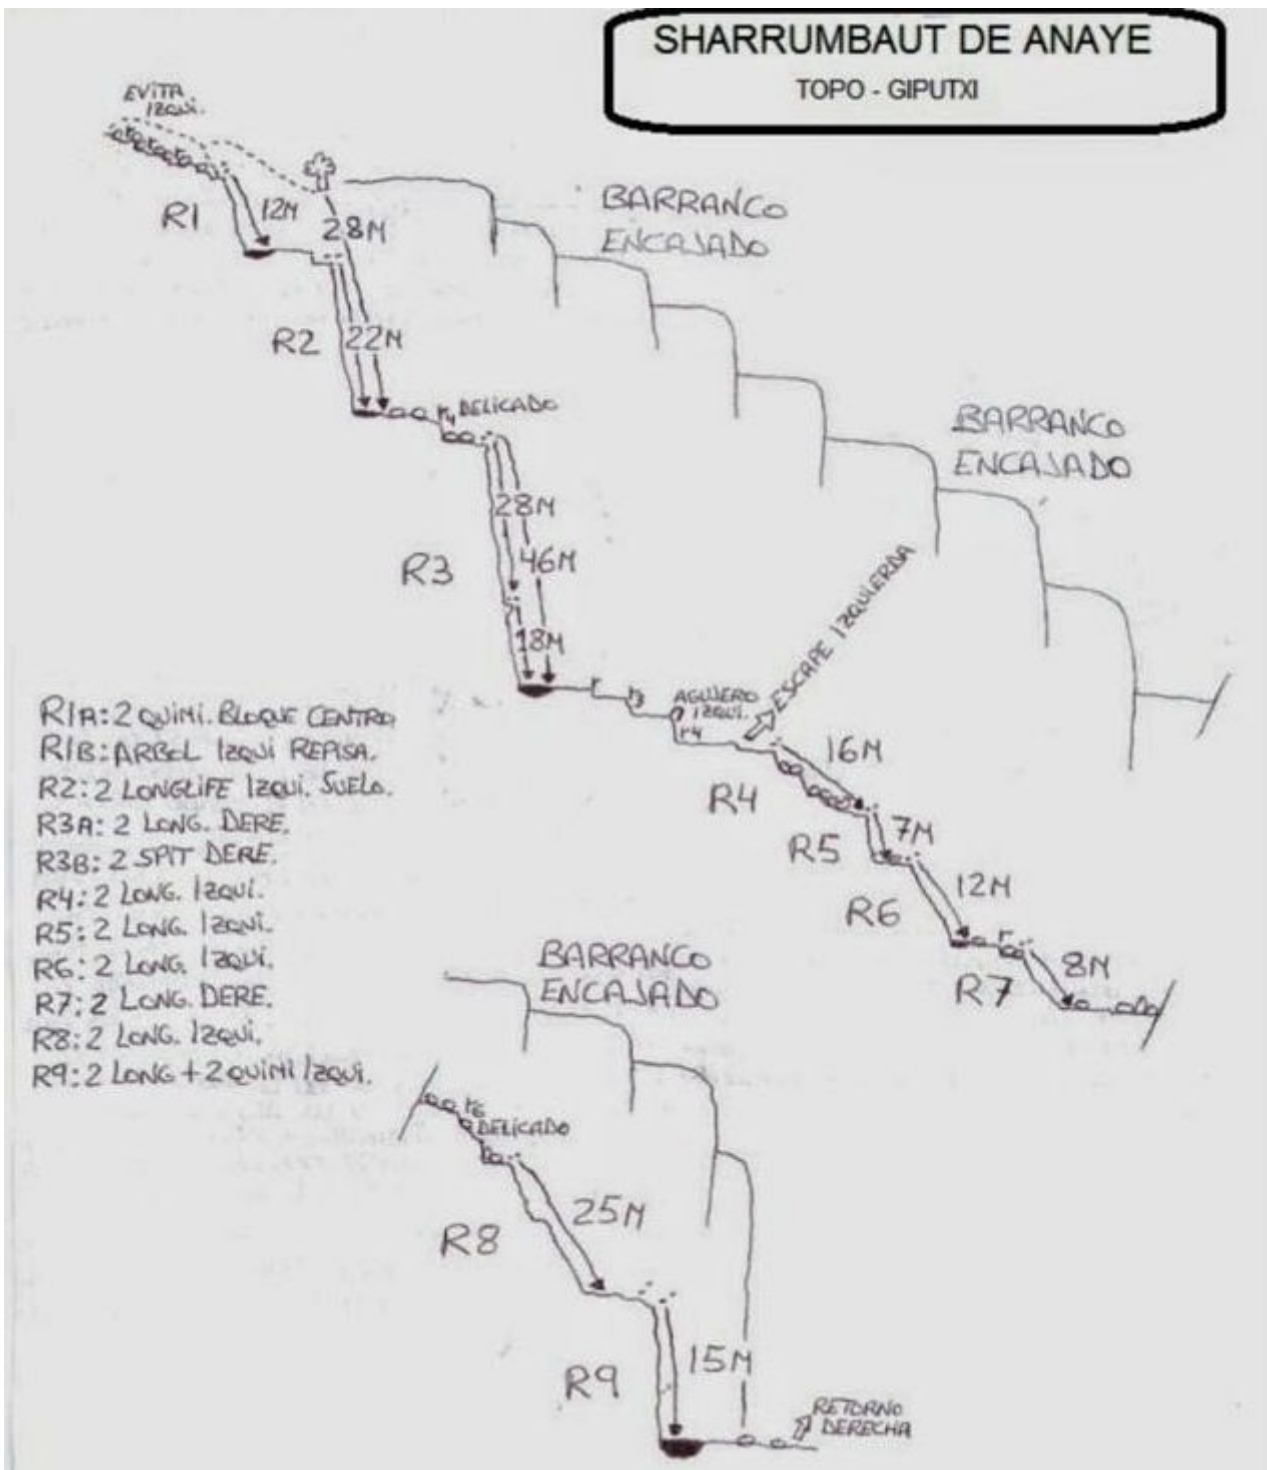 SHARRUMBAUT DE ANAYE
TOPO - GIPUTXI
EVITA
IZQUI.
R1
12M
28M
BARRANCO
ENCAJADO
R2
22M
r4 DELICADO
BARRANCO
ENCAJADO
28M
R3
46M
18M
ESCAPE IZQUIERDA
r
r3
AGUJERO
IZQUI.
r4
16M
R4
7M
R5
12M
R6
r
8M
R7
R1A: 2 QUIMI. BLOQUE CENTRO
R1B: ARBOL IZQUI REPISA.
R2: 2 LONGLIFE IZQUI. SUELO.
R3A: 2 LONG. DERE.
R3B: 2 SPIT DERE.
R4: 2 LONG. IZQUI.
R5: 2 LONG. IZQUI.
R6: 2 LONG. IZQUI.
R7: 2 LONG. DERE.
R8: 2 LONG. IZQUI.
R9: 2 LONG + 2 QUIMI IZQUI.
BARRANCO
ENCAJADO
r6
DELICADO
25M
R8
15M
R9
RETORNO
DERECHA